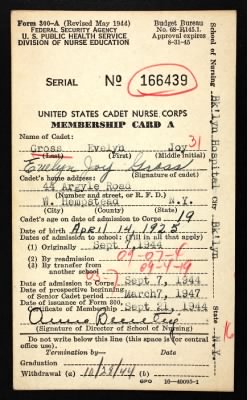 Form 300-A (Revised May 1944)
FEDERAL SECURITY AGENCY
U. S. PUBLIC HEALTH SERVICE
DIVISION OF NURSE EDUCATION
Budget Bureau
No. 68-R145.1.
Approval expires
8-31-45
SERIAL No 166439
UNITED STATES CADET NURSE CORPS
MEMBERSHIP CARD A
Name of Cadet: 31
Gross Evelyn Joy
(Last) (First) (Middle initial)
Evelyn Joy Gross
Cadet's home address: (Signature of cadet)
44 Argyle Road
(Number and street, or R. F. D.)
W. Hempstead N.Y.
(City) (County) (State)
Cadet's age on date of admission to Corps 19
Date of birth APRIL 14, 1925
Date of admission to school: (Fill in all that apply)
(1) Originally Sept 7, 1944
(2) By readmission 09-07-4
(3) By transfer from 09-4-19
another school
Date of admission to Corps Sept 7, 1944
Date of prospective beginning
of Senior Cadet period March 7, 1947
Date of issuance of Form 300,
Certificate of Membership Sept 21, 1944
(Signature of Director of School of Nursing)
Do not write below this line (this space for central
office use).
Termination by— Date
Graduation
Withdrawal (a) 10/28/44 (b)
GPO 16-40095-1
School of Nursing Bklyn Hospital City Bklyn State N.Y.
16